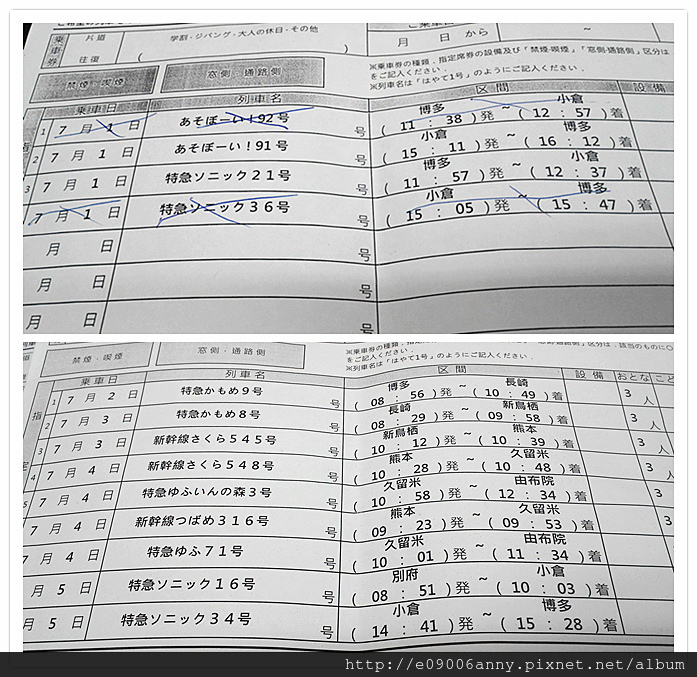 乗車券 片道 学割・ジパング・大人の休日・その他
往復 ( )
月 日 から ~
※乗車券の種類，指定席券の設備及び「禁煙・喫煙」「窓側・通路側」区分は
をご記入ください．
※列車名は「はやて1号」のようにご記入ください．
禁煙・喫煙 窓側・通路側
乗車日 列車名 区間 設備
1 7月1日 あそぼーい！92号 号 博多 ~ 小倉 (11:38)発 (12:57)着
2 7月1日 あそぼーい！91号 号 小倉 ~ 博多 (15:11)発 (16:12)着
3 7月1日 特急ソニック２１号 号 博多 ~ 小倉 (11:57)発 (12:37)着
7月1日 特急ソニック３６号 号 小倉 ~ 博多 (15:05)発 (15:47)着
月 日 号
月 日 号
月 日 号
禁煙・喫煙 窓側・通路側
をご記入ください．
※列車名は「はやて1号」のようにご記入ください．
乗車日 列車名 区間 設備 おとな こど
指
1 7月2日 特急かもめ９号 号 博多 ~ 長崎 (08:56)発 (10:49)着 3人
2 7月3日 特急かもめ８号 号 長崎 ~ 新鳥栖 (08:29)発 (09:58)着 3人
3 7月3日 新幹線さくら５４５号 号 新鳥栖 ~ 熊本 (10:12)発 (10:39)着 3人
4 7月4日 新幹線さくら５４８号 号 熊本 ~ 久留米 (10:28)発 (10:48)着 3人
7月4日 特急ゆふいんの森３号 号 久留米 ~ 由布院 (10:58)発 (12:34)着 3
7月4日 新幹線つばめ３１６号 号 熊本 ~ 久留米 (09:23)発 (09:53)着
7月4日 特急ゆふ７１号 号 久留米 ~ 由布院 (10:01)発 (11:34)着
月5日 特急ソニック１６号 号 別府 ~ 小倉 (08:51)発 (10:03)着
月5日 特急ソニック３４号 号 小倉 ~ 博多 (14:41)発 (15:28)着
http://e09006anny.pixnet.net/album